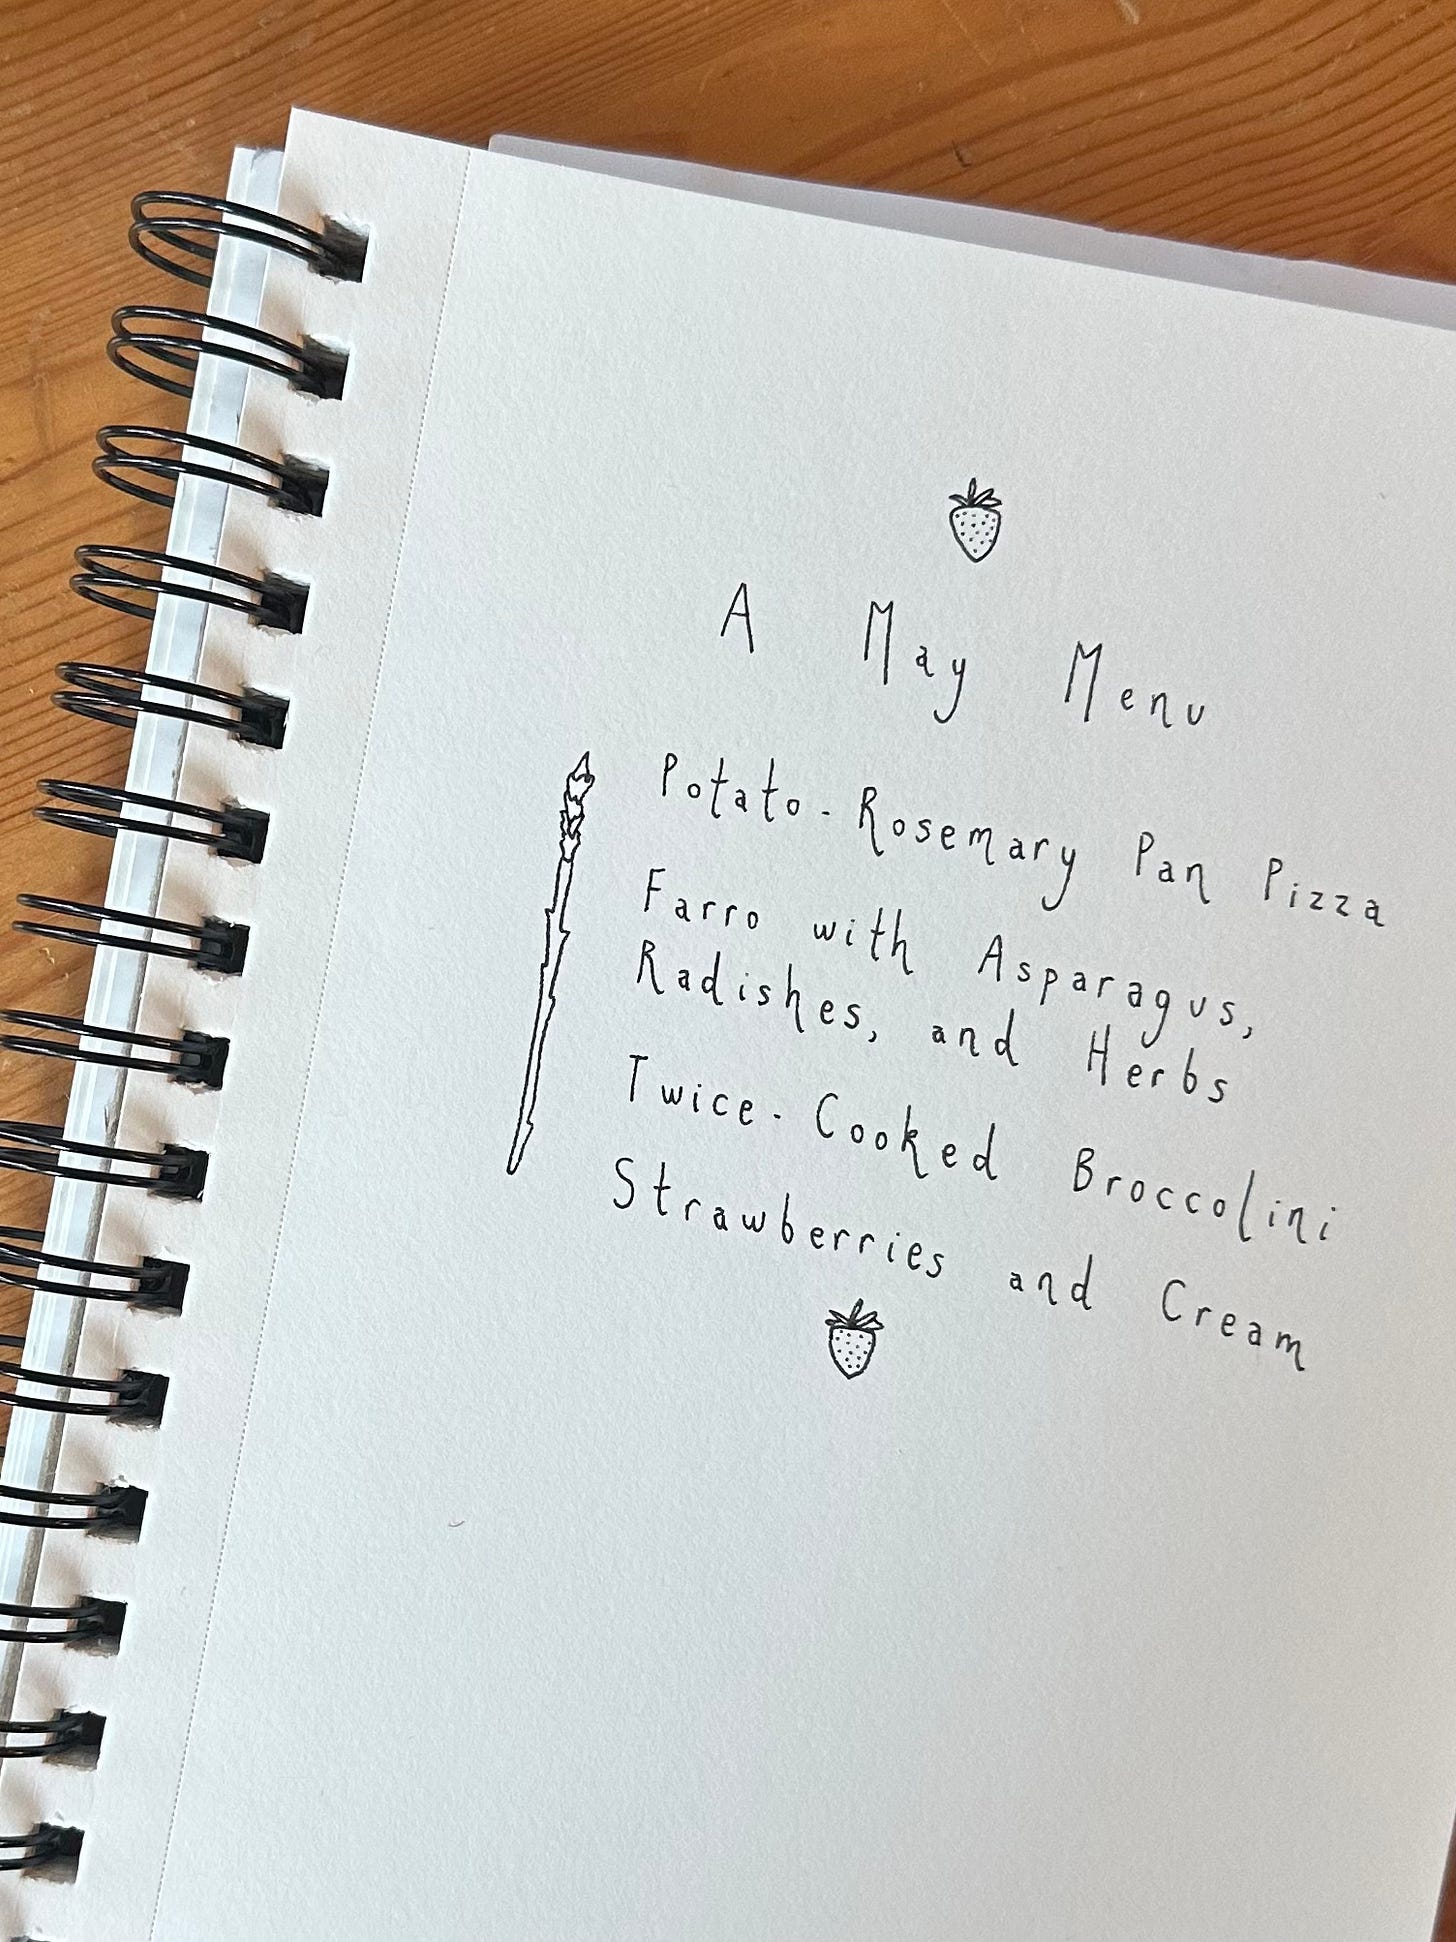 A May Menu
Potato-Rosemary Pan Pizza
Farro with Asparagus,
Radishes, and Herbs
Twice-Cooked Broccolini
Strawberries and Cream